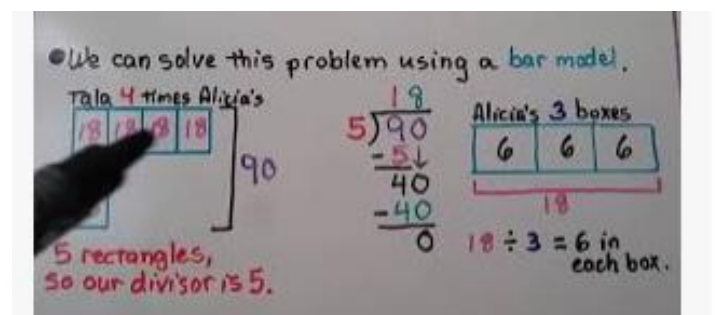 ●We can solve this problem using a bar model.
Tala 4 times Alicia's
18 18 18 18
90
5 rectangles,
so our divisor is 5.
18
5)90
-5↓
40
-40
0
Alicia's 3 boxes
6 6 6
18
18 ÷ 3 = 6 in
each box.